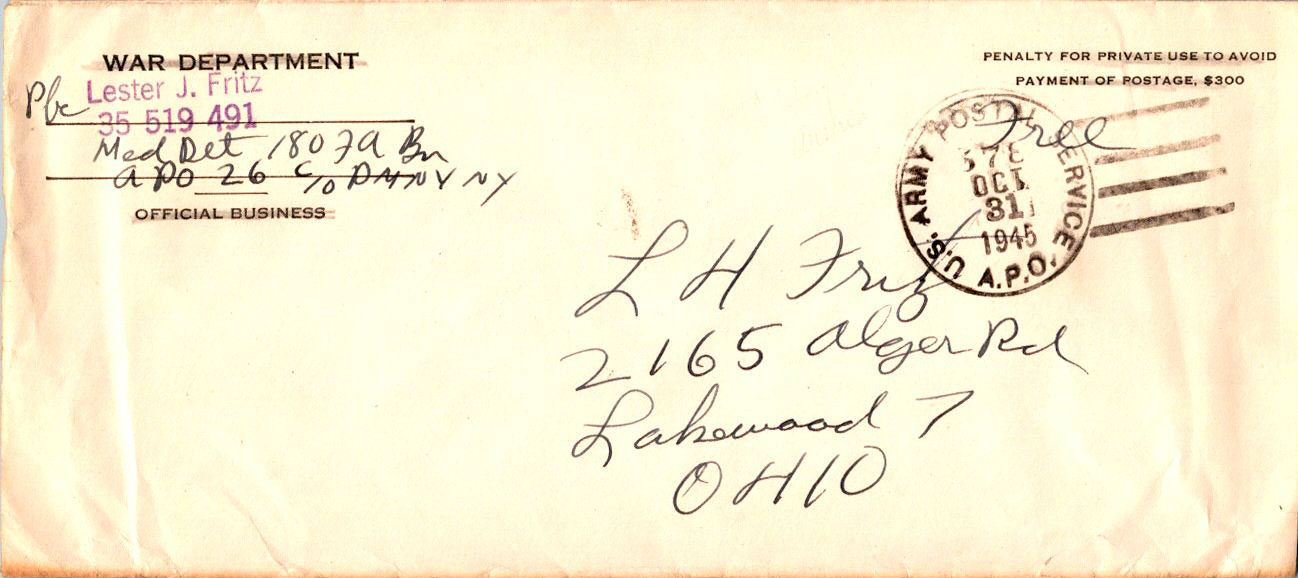 WAR DEPARTMENT
Pfc Lester J. Fritz
35 519 491
Med Det 180 FA Bn
APO 26 c/o PM NY NY
OFFICIAL BUSINESS
PENALTY FOR PRIVATE USE TO AVOID
PAYMENT OF POSTAGE, $300
Free
U.S. ARMY POSTAL SERVICE
OCT
31
1945
A.P.O.
L H Fritz
2165 Alger Rd
Lakewood 7
OHIO